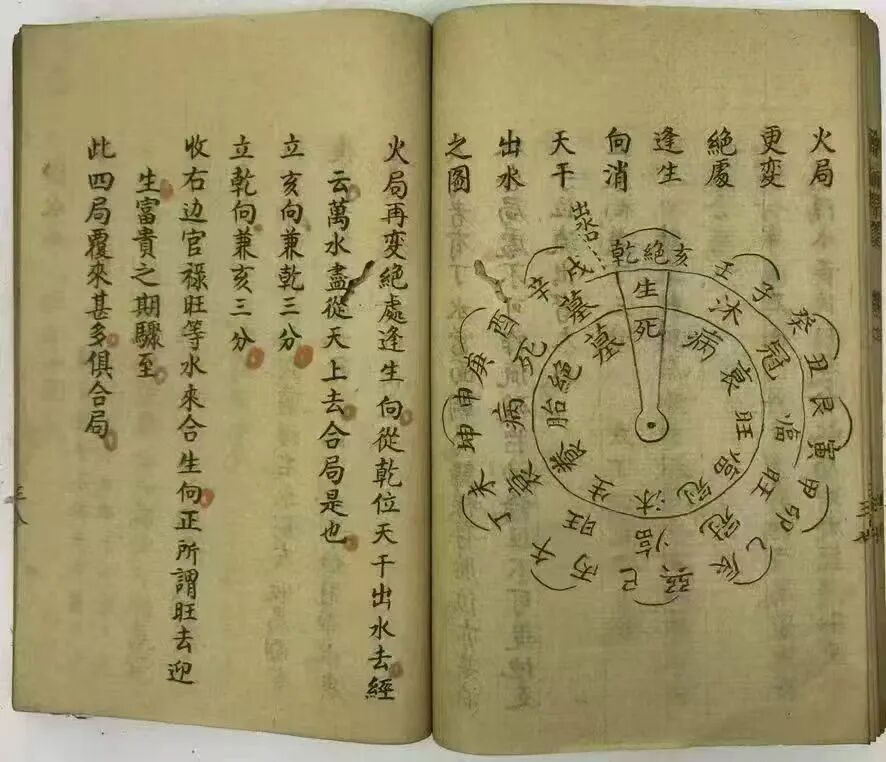 火局
更変
絕處
逢生
向消
天干
出水
之圖
出水口
乾絕亥
壬子
癸丑
艮寅
甲卯
乙辰
巽巳
丙午
丁未
坤申
庚酉
辛戌
生
沐
冠
临
旺
冠
临
旺
衰
病
死
墓
死
病
衰
旺
临
冠
沐
生
養
胎
絕
墓
火局再变絕處逢生向從乾位天干出水去經
云萬水盡從天上去合局是也
立亥向兼乾三分
立乾向兼亥三分
收右边官祿旺等水來合生向正所謂旺去迎
生富貴之期驟至
此四局覆來甚多俱合局